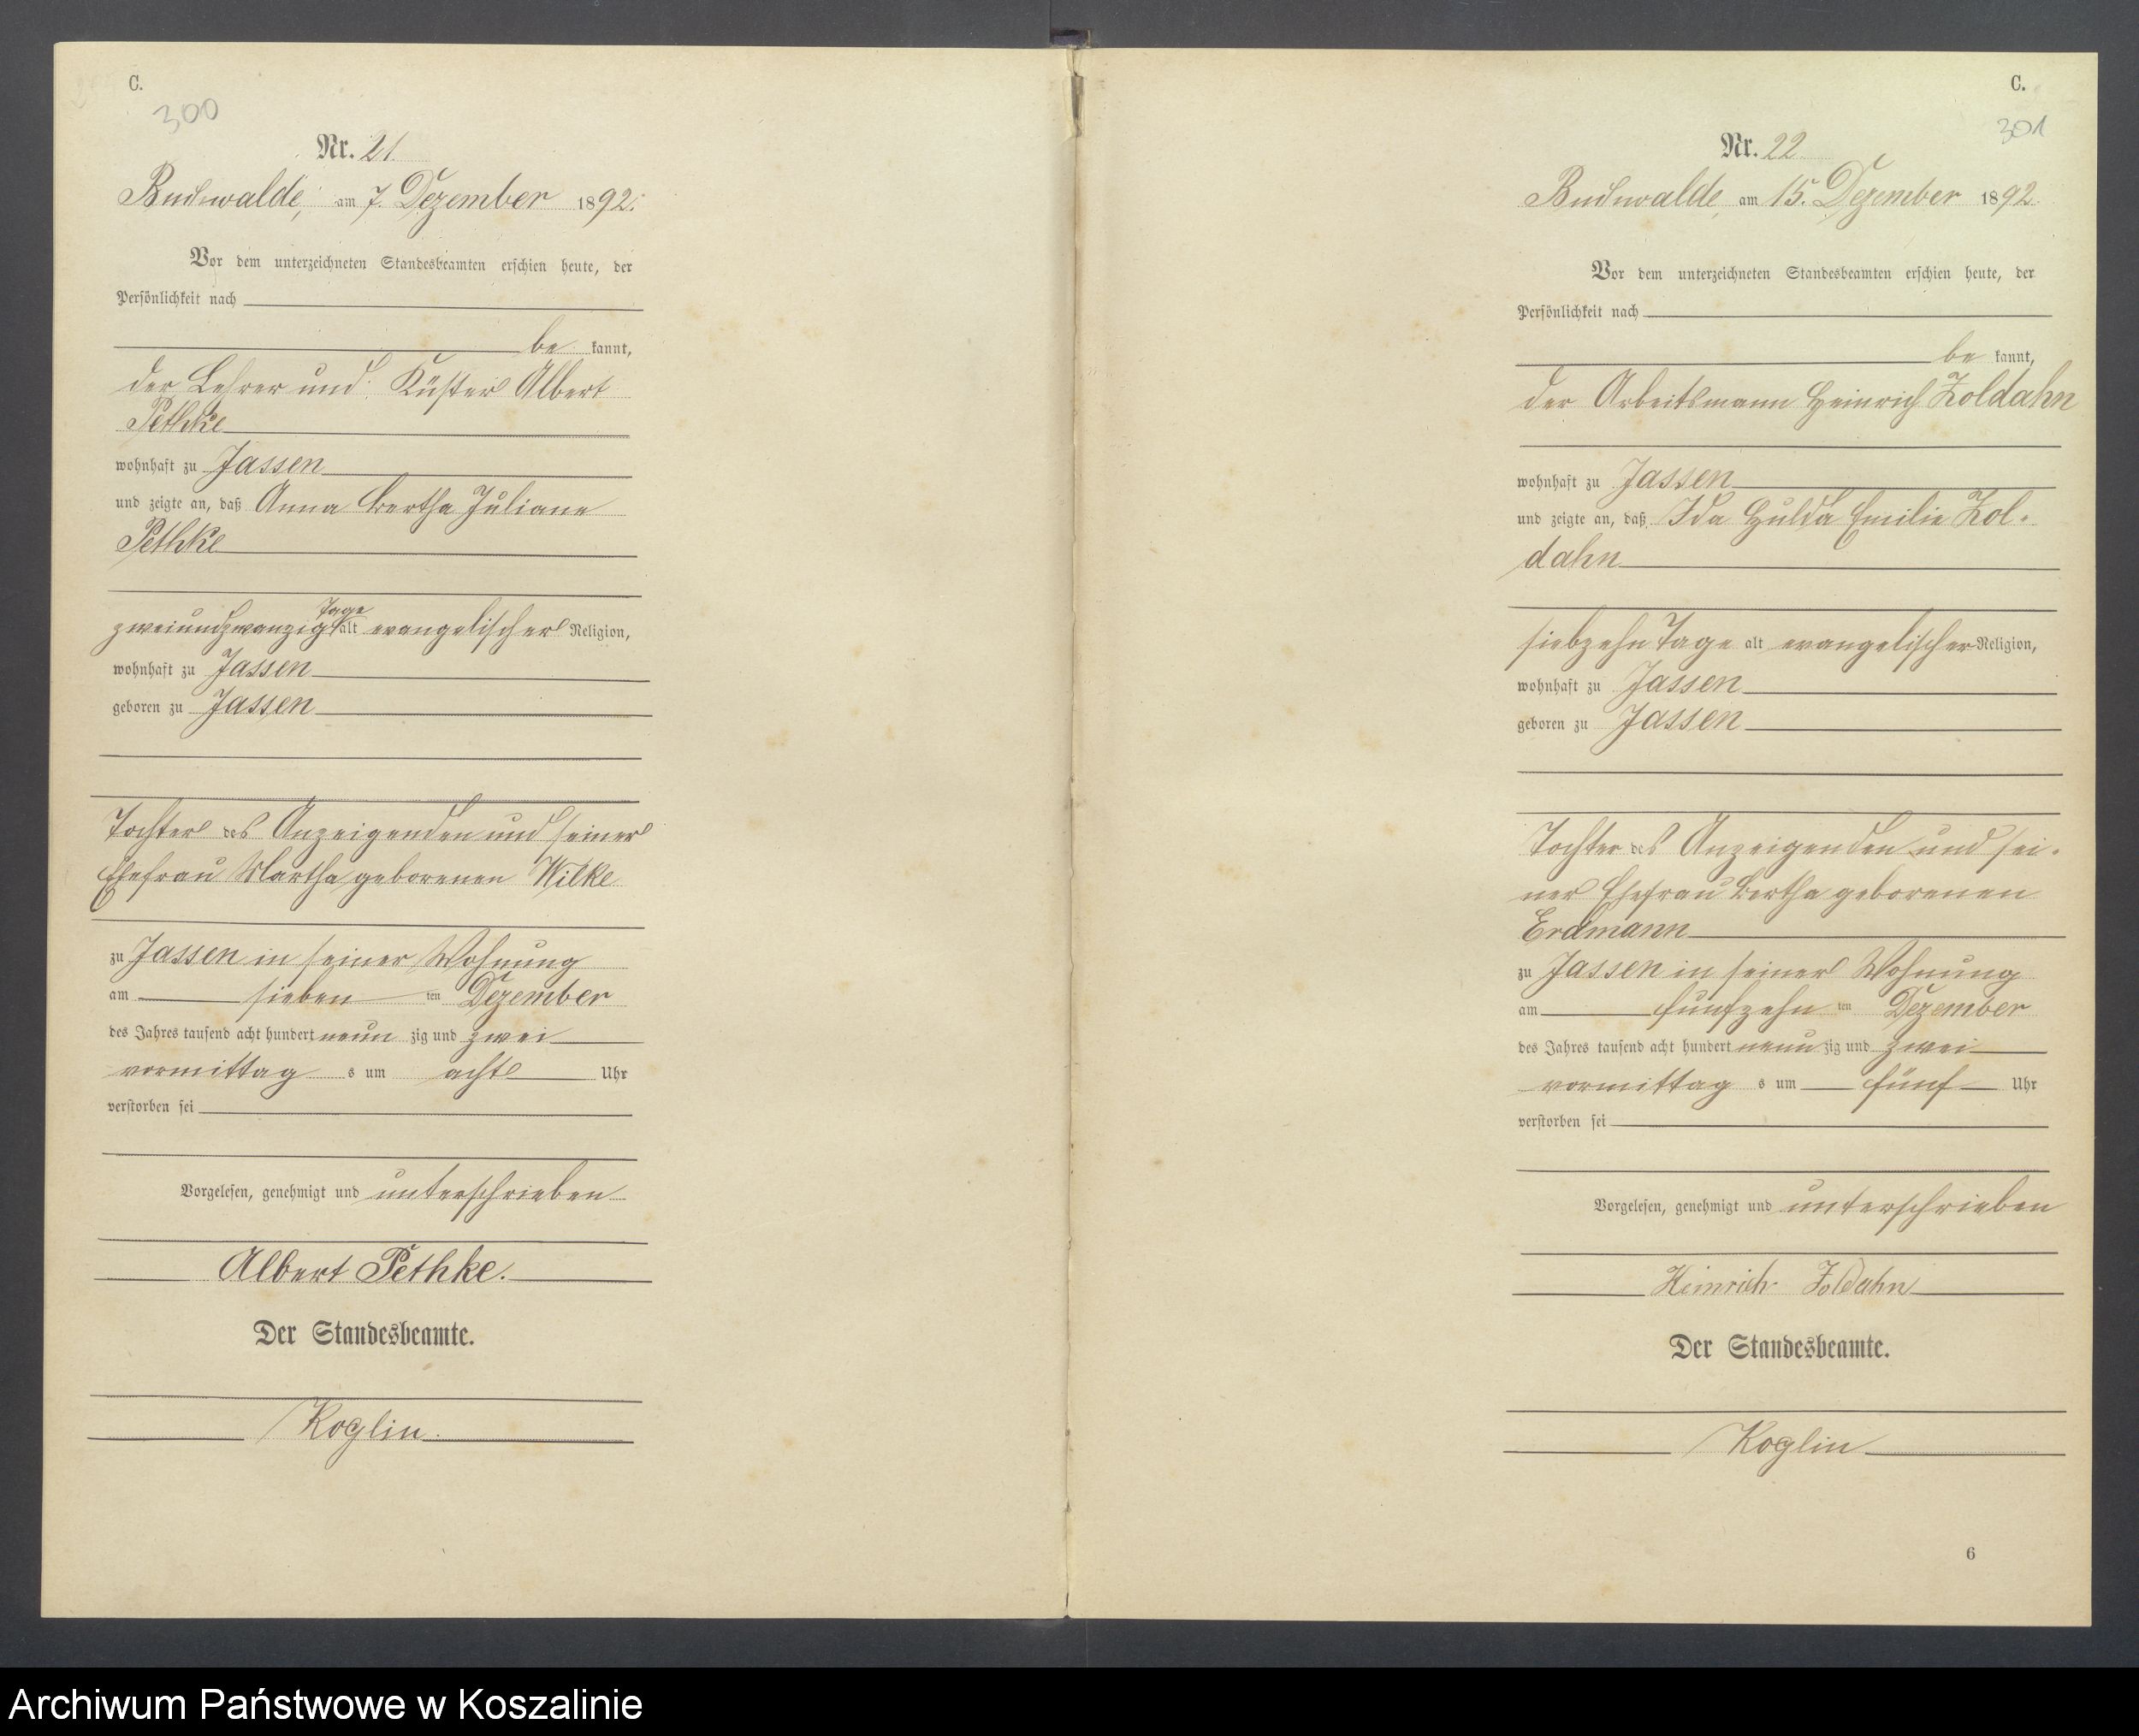 C.
300
Nr. 21.
Buchwalde, am 7. Dezember 1892.
Vor dem unterzeichneten Standesbeamten erschien heute, der
Persönlichkeit nach
be kannt,
der Lehrer und Küster Albert
Pethke
wohnhaft zu Jassen
und zeigte an, daß Anna Bertha Juliane
Pethke
Tage
zweiundzwanzig alt evangelischer Religion,
wohnhaft zu Jassen
geboren zu Jassen
Tochter des Anzeigenden und seiner
Ehefrau Martha geborenen Wilke
zu Jassen in seiner Wohnung
am sieben ten Dezember
des Jahres tausend acht hundert neun zig und zwei
vormittag s um acht Uhr
verstorben sei
Vorgelesen, genehmigt und unterschrieben
Albert Pethke.
Der Standesbeamte.
Koglin.
C.
301
Nr. 22.
Buchwalde, am 15. Dezember 1892.
Vor dem unterzeichneten Standesbeamten erschien heute, der
Persönlichkeit nach
be kannt,
der Arbeitsmann Heinrich Zoldahn
wohnhaft zu Jassen
und zeigte an, daß Ida Hulda Emilie Zol-
dahn
siebzehn Tage alt evangelischer Religion,
wohnhaft zu Jassen
geboren zu Jassen
Tochter des Anzeigenden und sei-
ner Ehefrau Bertha geborenen
Erdmann
zu Jassen in seiner Wohnung
am fünfzehn ten Dezember
des Jahres tausend acht hundert neun zig und zwei
vormittag s um fünf Uhr
verstorben sei
Vorgelesen, genehmigt und unterschrieben
Heinrich Zoldahn
Der Standesbeamte.
Koglin
6
Archiwum Państwowe w Koszalinie